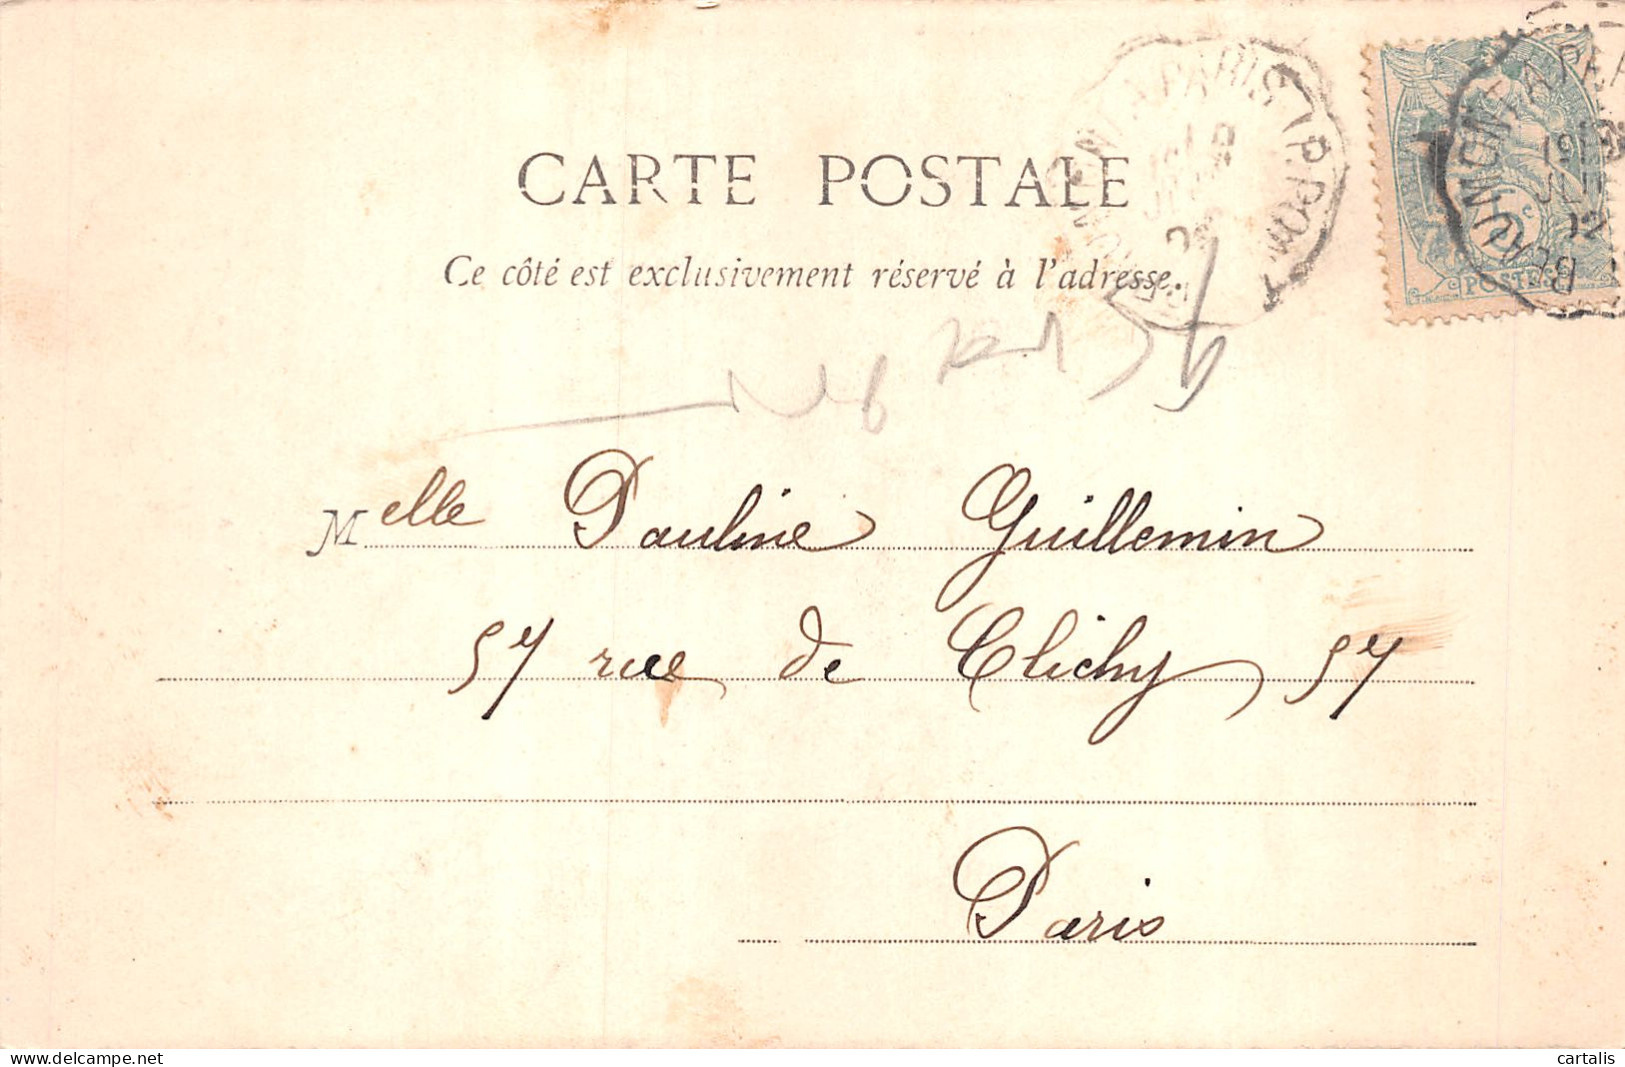 CARTE POSTALE
Ce côté est exclusivement réservé à l'adresse.
Melle Pauline Guillemin
57 rue de Clichy 57
Paris
5c
POSTES
À PARIS
www.delcampe.net
cartalis